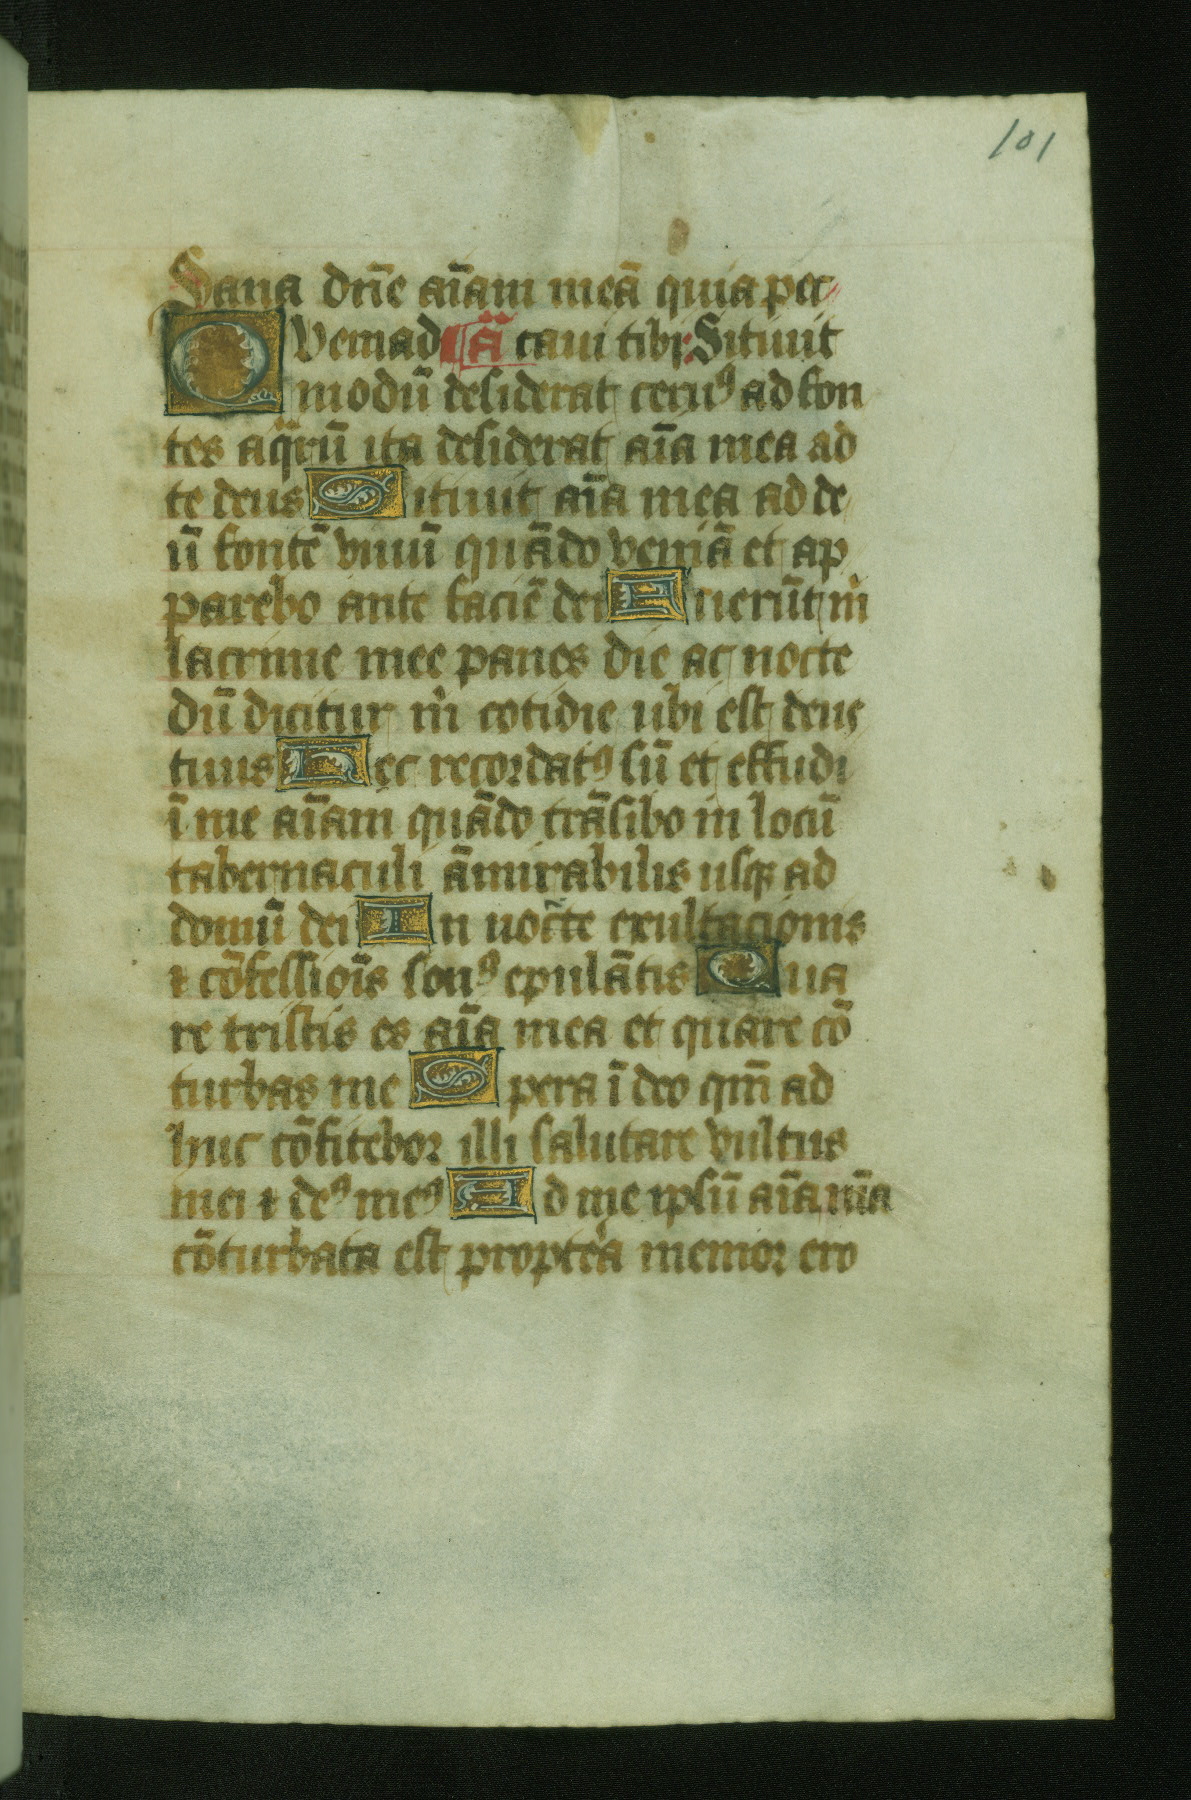 101
Sana dn̄e aīam meā quia pec
Quemad ā caui tibi: Sitiuit
modū desiderat ceruꝰ ad fon
tes aq̄rū ita desiderat aīa mea ad
te deus Sitiuit aīa mea ad de
ū fontē viuū quādo veniā et ap
parebo ante faciē dei Fuerūt m̄
lacrime mee panes die ac nocte
dū dicitur m̄ cotidie ubi est deus
tuus Hec recordatꝰ sū et effudi
ī me aīam quādo trāsibo in locū
tabernaculi āmirabilis usqꝫ ad
domū dei In uoc̄te exultacionis
⁊ cōfessioīs sonꝰ epulātis Qua
re tristis es aīa mea et quare cō
turbas me Spera ī deo qm̄ ad
huc cōfitebor illi salutare vultus
mei ⁊ deꝰ meꝰ Ad me ipsū aīa m̄a
cōturbata est propter̄a memor ero